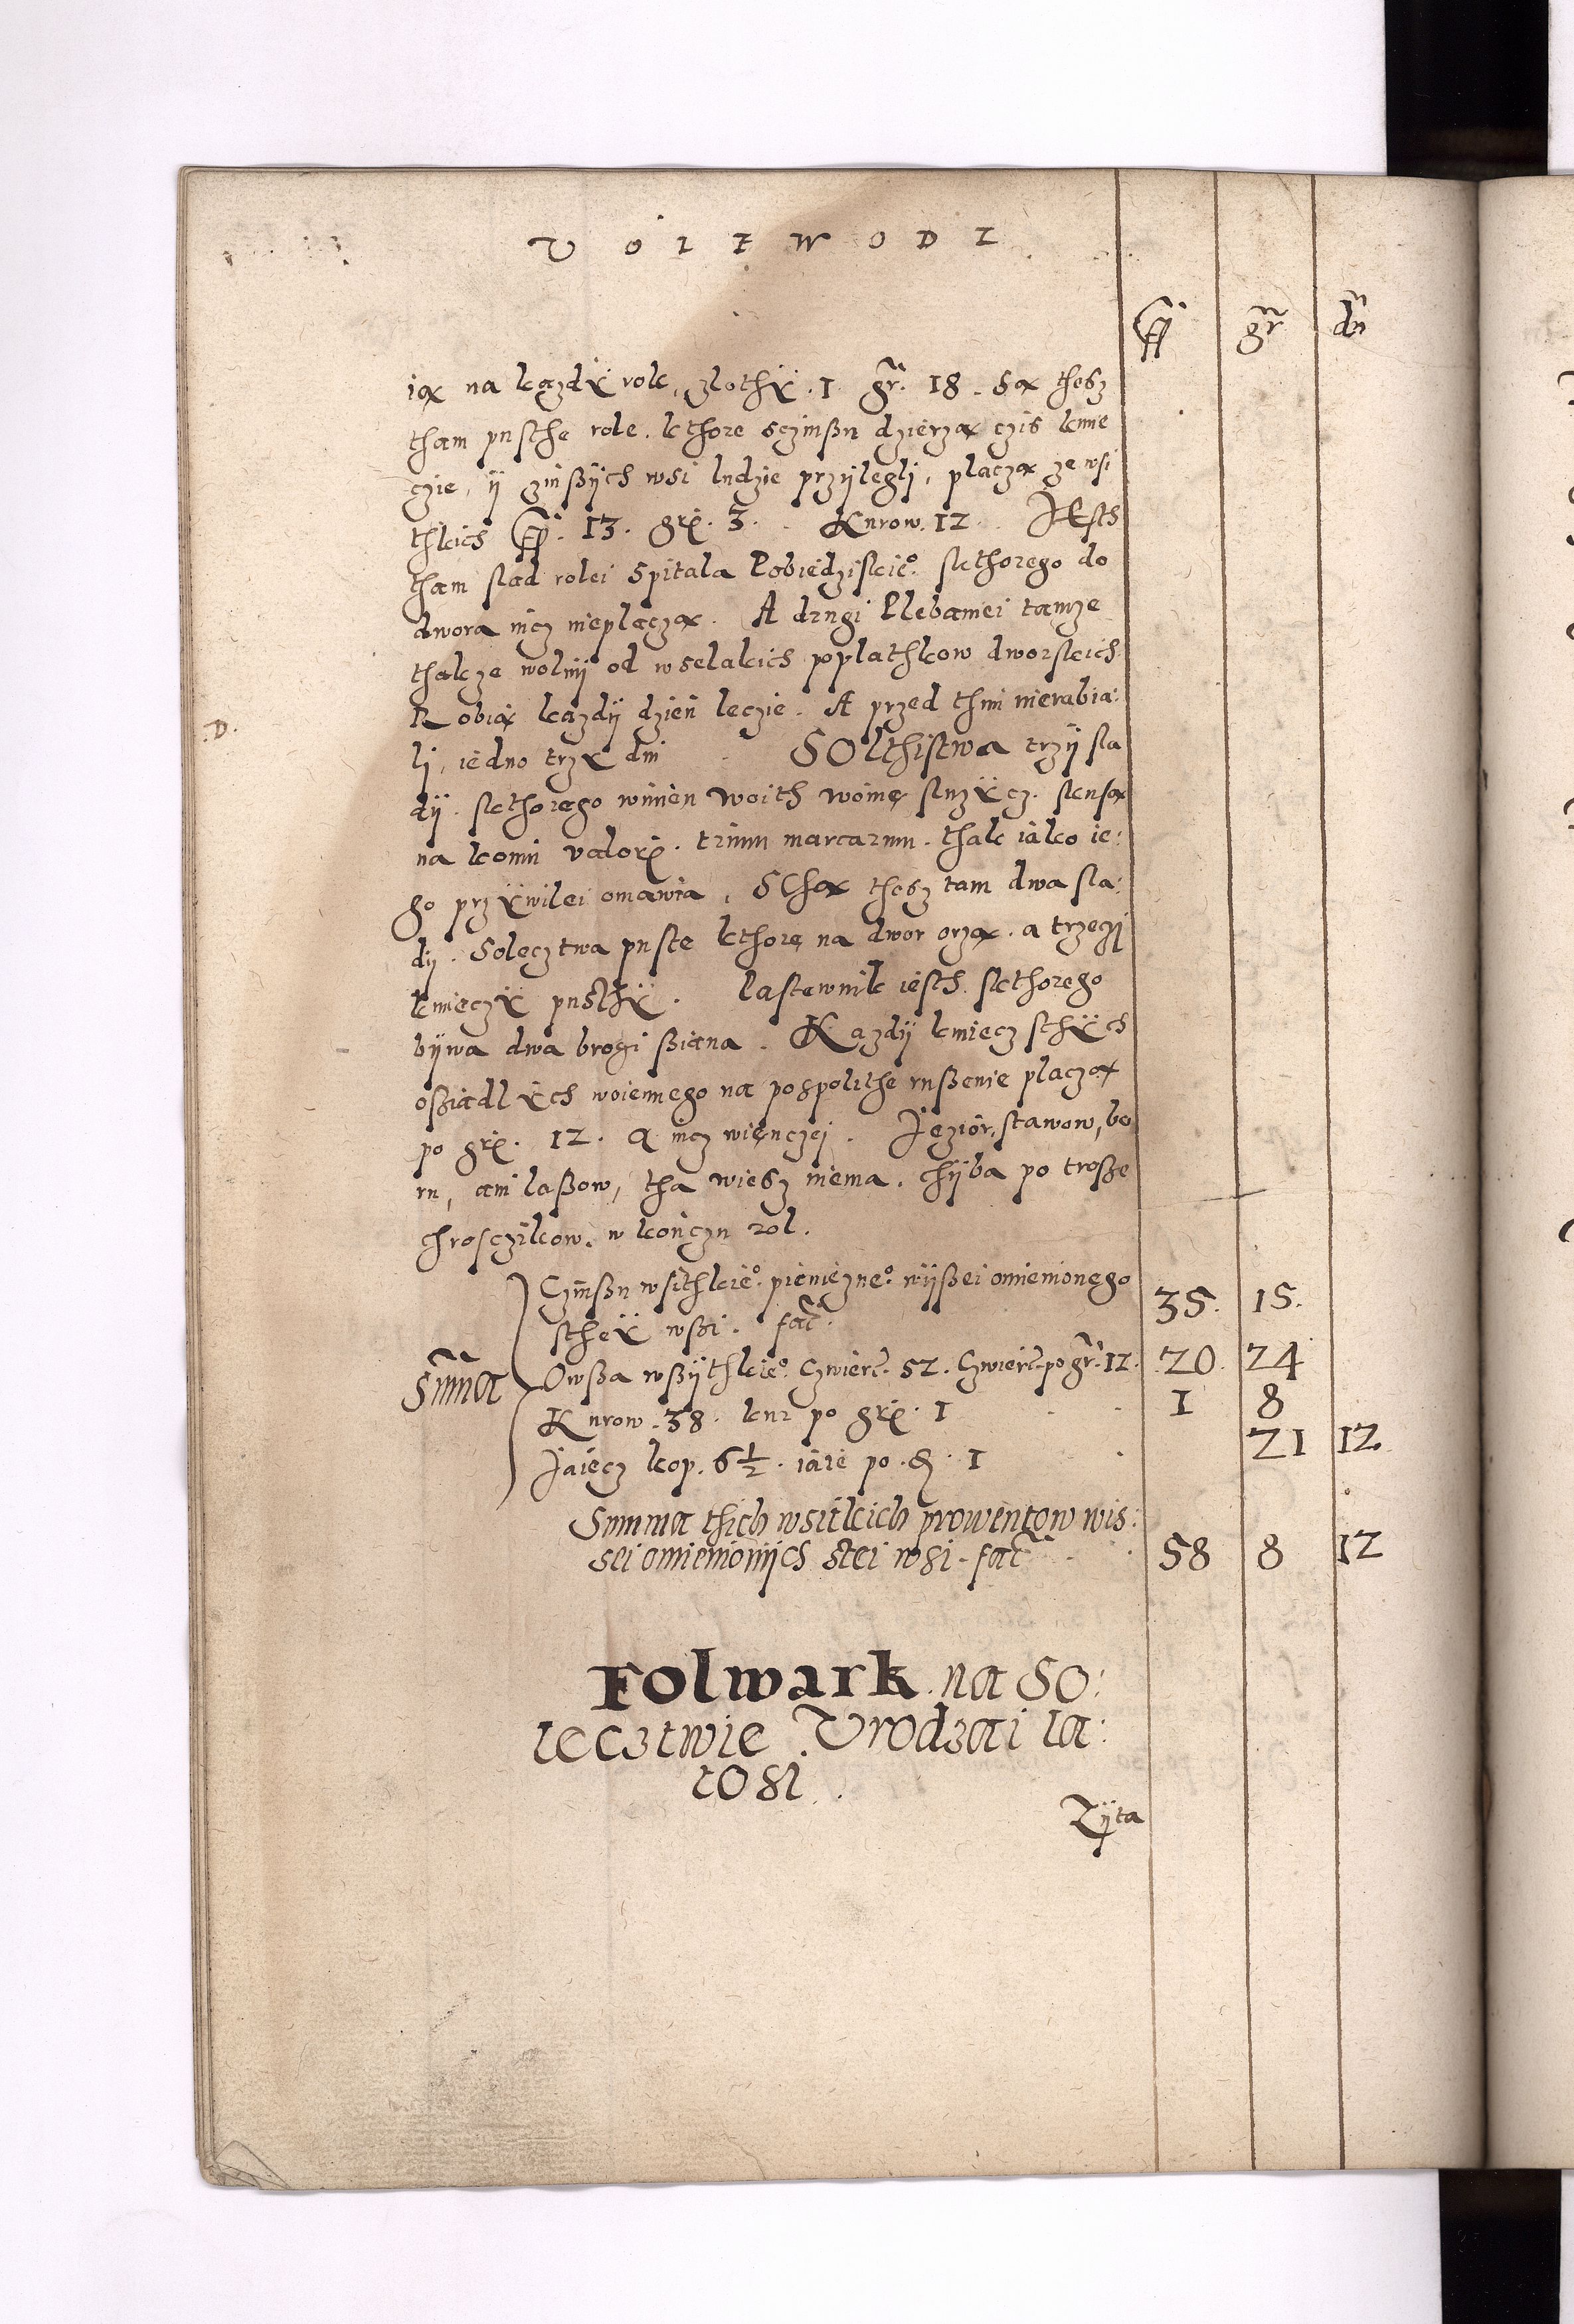 VOIEWODI
fl gr dn
ią na kazdÿ rok, zlothÿ. 1 gr. 18. Są thesz
tham pusthe role. kthore sczinßu dzierzą czis kmie
czie, ÿ zinßÿch wsi ludzie przÿlegli, placzą ze wsi
thkich fl. 13. grꝭ. 3. Kurow. 12. JEsth
tham slad rolei Spitala Pobiedziskieo. skthorego do
dwora nicz nieplaczą. A drugi Plebaniei tamze
thakze wolnÿ od wselakich poplathkow dworskich
Robią kazdÿ dzień leczie. A przed thim nierabia:
li, iedno trzÿ dni SOlthistwa trzÿ sla
dÿ. skthorego winien woith woinę sluzÿcz. skusą
na koniu valorꝭ. trium marcarum. thak iako ie:
go przÿwilei omawia, SThą thesz tam dwa sla:
dÿ. Solecztwa puste kthore na dwor orzą. a trzeci
kmieczÿ pusthÿ. lastewnik iesth skthorego
bÿwa dwa brogi ßiana. Kazdÿ kmiecz sthÿch
oßiadlÿch woiennego na pospolithe rußenie placzą
po grꝭ. 12. a nicz wienczei. Jezior, stawow, bo
ru, ani laßow, tha wiesz niema. chÿba po troße
chrosczikow. w kończu rol.
Czinßu wsithkieo. pienięzneo. wÿßei omienionego
stheÿ wßi. facͭ. 35. 15.
Summa Owßa wßÿthkieo. Czwierc. 52. Czwierc. po gr. 12. 20. 24
Kurow. 38. kur po grꝭ. 1 1 8
Jaiecz kop. 6 1/2. iaie po. ₰. 1 21 12
Summa thich wsitkich prowentow wis:
sei omienionÿch stei wsi. facͭ 58 8 12
Folwark na So:
lecztwie Vrodzai la:
tosi
Zÿta
.D.